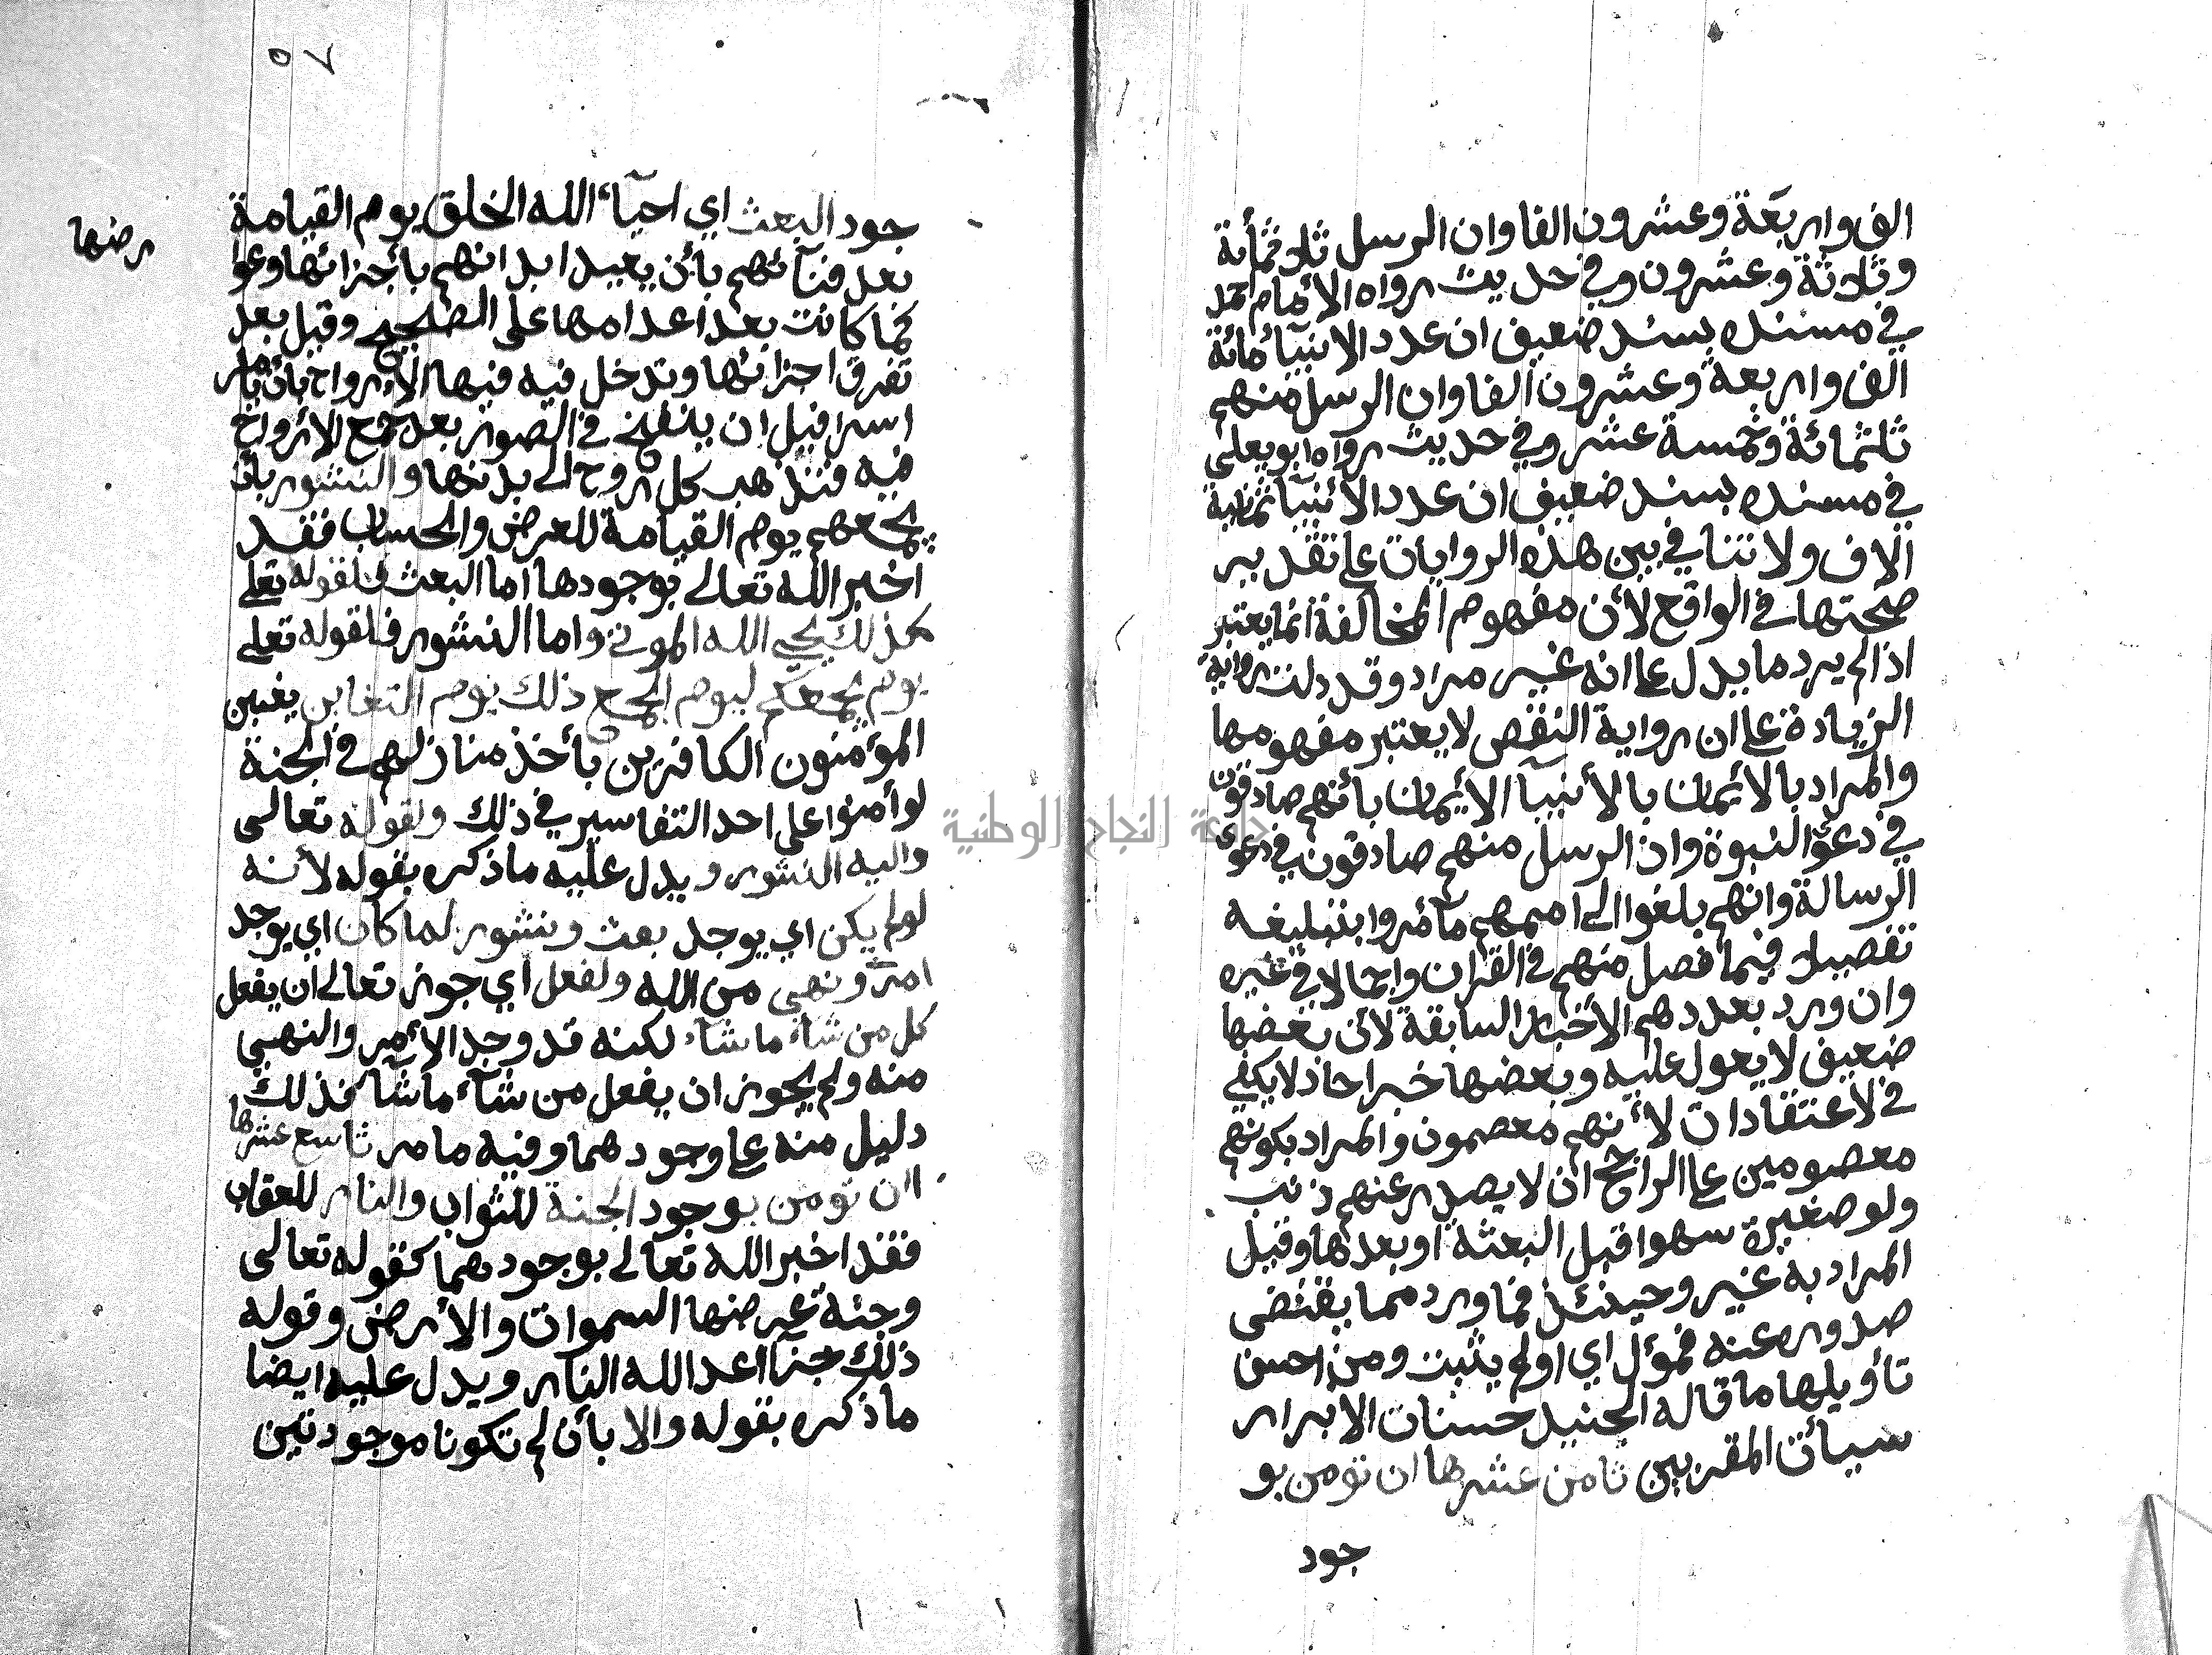 الف واربعة وعشرون الفا وان الرسل ثلاثمأية
وثلاثة وعشرون وفي حديث رواه الأمام احمد
في مسنده بسند ضعيف ان عدد الانبيآ مائة
الف واربعة وعشرون الفا وان الرسل منهم
ثلثمائة وخمسة عشر وفي حديث رواه ابو يعلى
في مسنده بسند ضعيف ان عدد الأنبيآ ثمانية
الاف ولا تنافي بين هذه الروايات على تقدير
صحتها في الواقع لأن مفهوم المخالفة انما يعتبر
اذا لم يرد ما يدل على انه غير مراد وقد دلت رواية
الزيادة على ان رواية النقص لا يعتبر مفهومها
والمراد بالأيمان بالأنبيآ الأيمان بأنهم صادقون
في دعوى النبوة وان الرسل منهم صادقون في دعوى
الرسالة وانهم بلغوا الى اممهم مآ أمروا بتبليغه
تفصيلا فيما فصل منهم في القران واجمالا في غيره
وان ورد بعددهم الأخبار السابقة لأن بعضها
ضعيف لا يعول عليه وبعضها خبر احاد لا يكفي
في لاعتقادات لأنهم معصمون والمراد بكونهم
معصومين على الراجح ان لا يصدر عنهم ذنب
ولو صغيرة سهوا قبل البعثة او بعدها وقيل
المراد به غير وحينئذ فما ورد مما يقتضى
صدوره عنه فمؤل اي او لم يثبت ومن احسن
تأويلها ما قاله الجنيد حسنات الابرار
سيأت المقربين ثامن عشرها ان تومن بو
جود
٥٧
جود البعث اي احيآء الله الخلق يوم القيامة
بعد فنآئهم بأن يعيد ابدانهم بأجزائها وعوا
رضها
كما كانت بعد اعدامها على الصحيح وقيل بعد
تفرق اجزائها وتدخل فيه فيها الأرواح بأن يأمر
اسرافيل ان ينفخ في الصور بعد جمع الارواح
فيه فتذهب كل روح الى بدنها والنشور بان
يجمعهم يوم القيامة للعرض والحساب فقد
اخبر الله تعالى بوجودها اما البعث فلقوله تعلى
كذلك يحيي الله الموتى واما النشور فلقوله تعلى
يوم يجمعكم ليوم الجمع ذلك يوم التغابن يغبن
المؤمنون الكافرين بأخذ منازلهم في الجنة
لوأمنوا على احد التفاسير في ذلك ولقوله تعالى
واليه النشور ويدل عليه ما ذكره بقوله لأنه
لو لم يكن اي يوجد بعث ونشور لما كان اي يوجد
امر ونهي من الله ولفعل اي جوز تعالى ان يفعل
كل من شاء ما شاء لكنه قد وجد الأمر والنهي
منه ولم يجوز ان يفعل من شآء ما شآ فذلك
دليل منه على وجودهما وفيه ما مر تاسع عشرها
ان تومن بوجود الجنة للثواب والنار للعقاب
فقد اخبر الله تعالى بوجودهما كقوله تعالى
وجنة عرضها السموات والأرض وقوله
ذلك جزآ اعدا الله النار ويدل عليه ايضا
ما ذكره بقوله والا بأن لم تكونا موجودتين
جامعة النجاح الوطنية